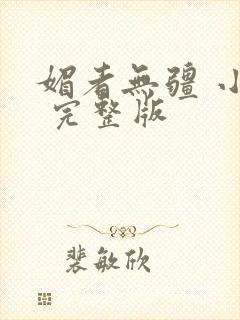 媚者無疆 小
完整版
裴敏欣